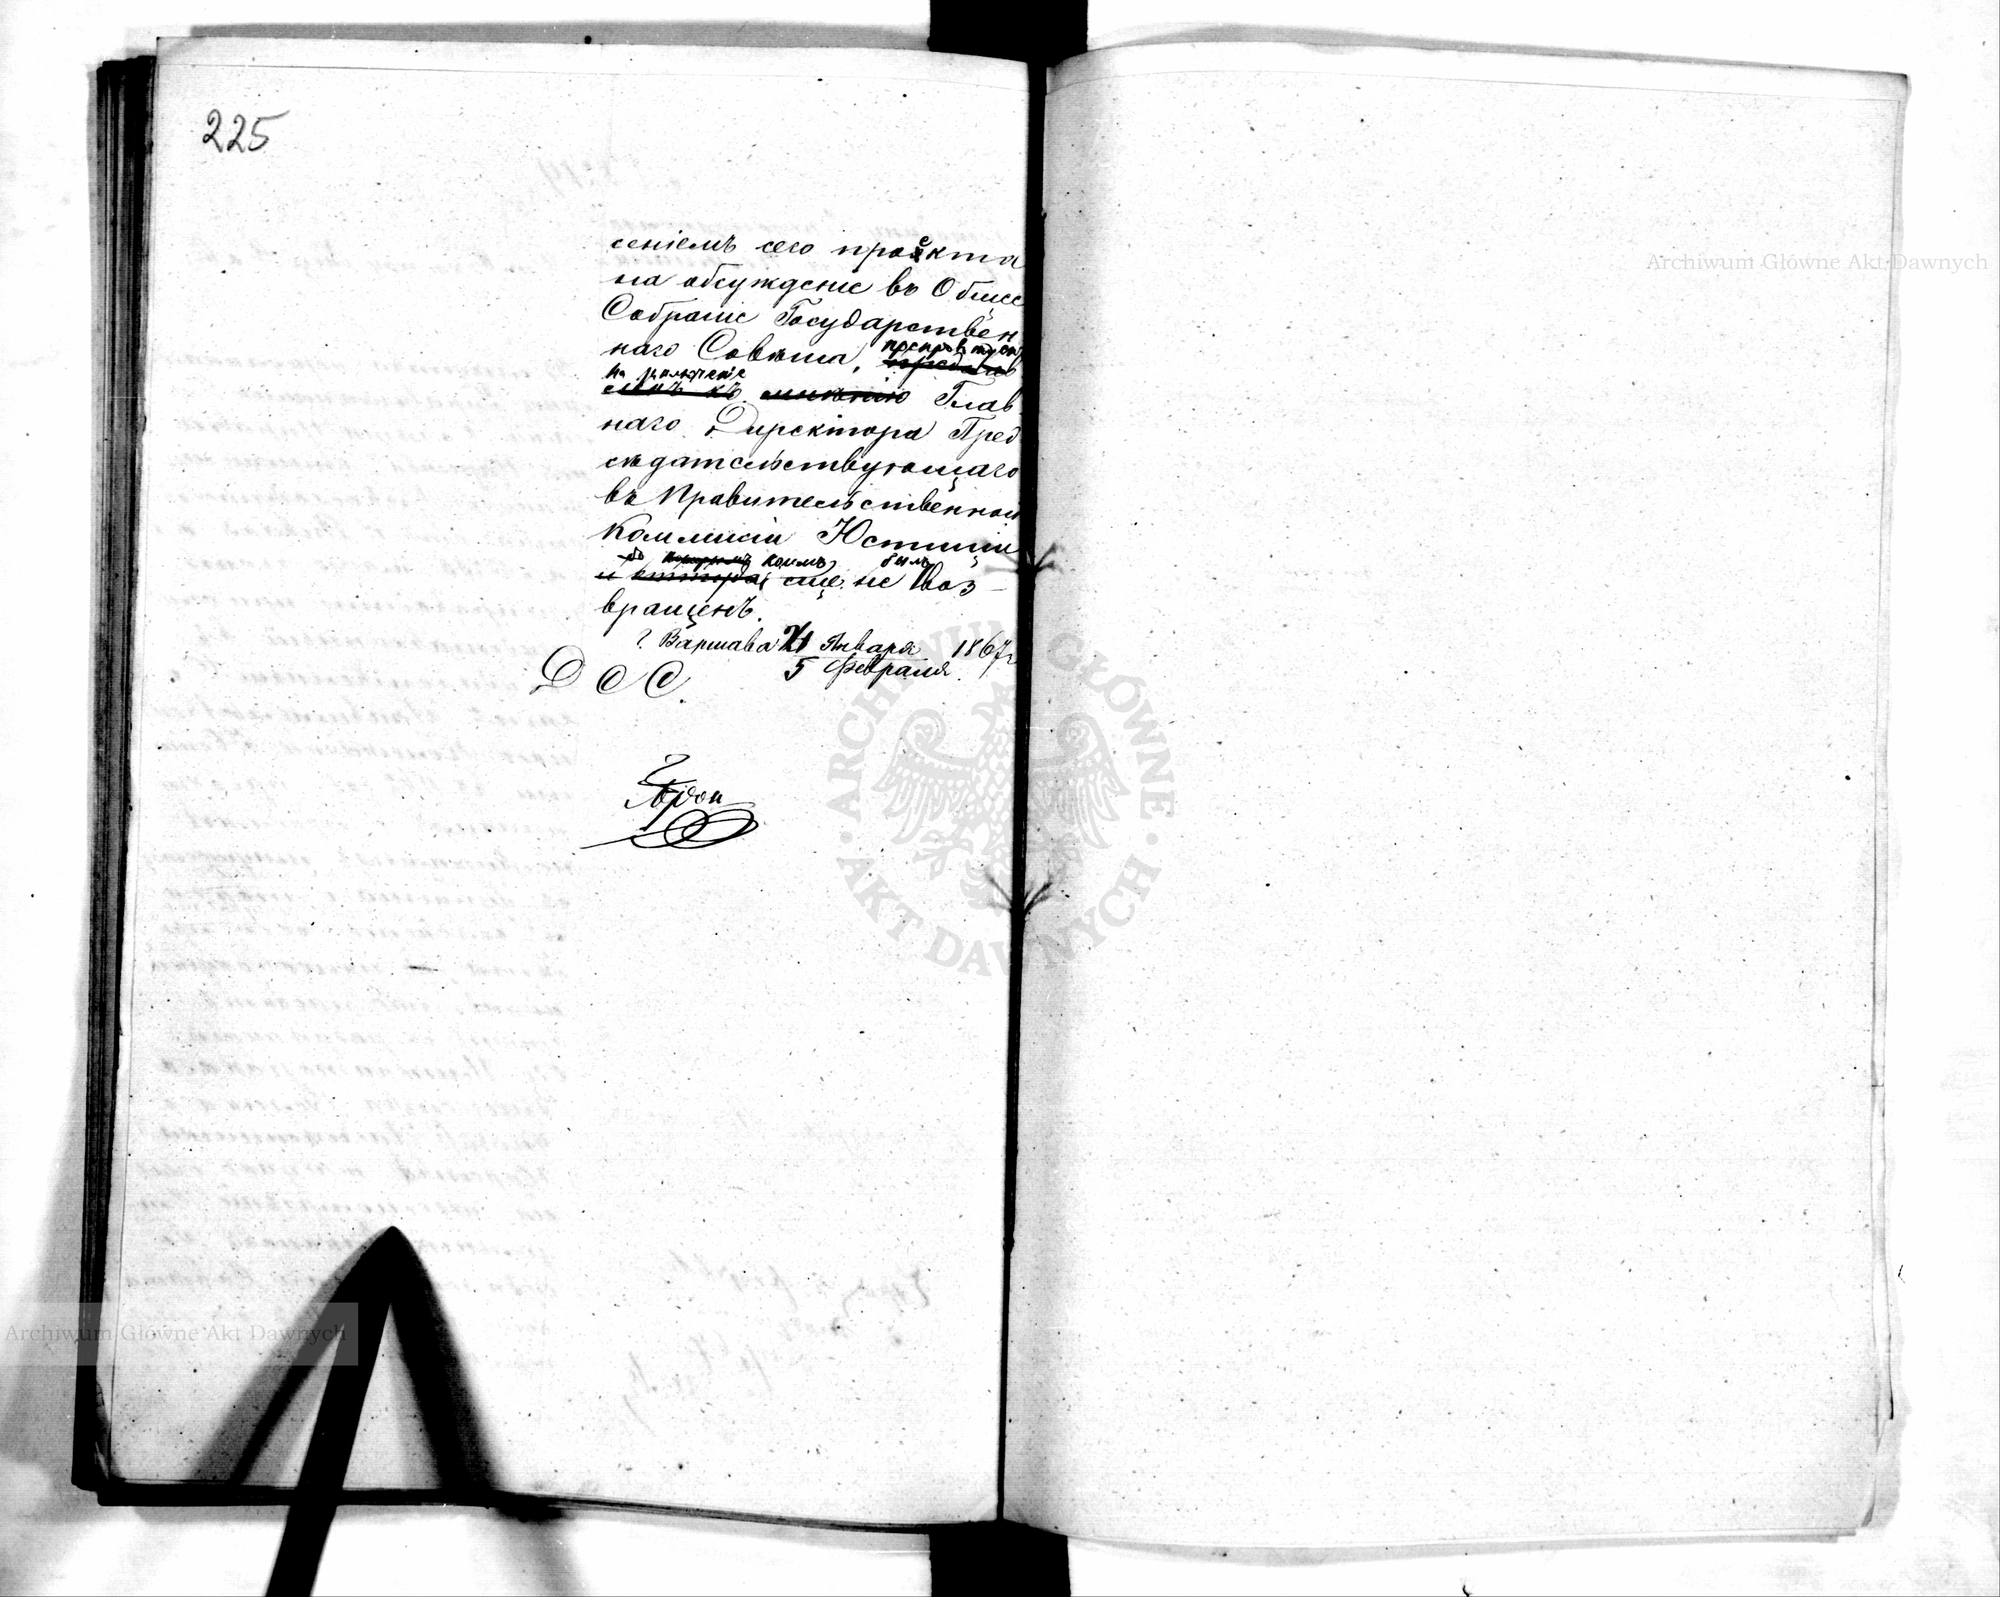 225
сеніемъ сего проекта
на обсужденіе въ Общее
Собраніе Государствен
наго Совѣта, препровожден
на заключеніе
сланъ къ мнѣнію Глав
наго Директора Пред
сѣдательствующаго
въ Правительственной
Коммисіи Юстиціи
коимъ былъ
и которая еще не воз-
вращенъ.
г. Варшава 24 Января 1867 г.
5 Февраля.
Д С С.
Archiwum Główne Akt Dawnych
ARCHIWUM GŁÓWNE
AKT DAWNYCH
Archiwum Główne Akt Dawnych